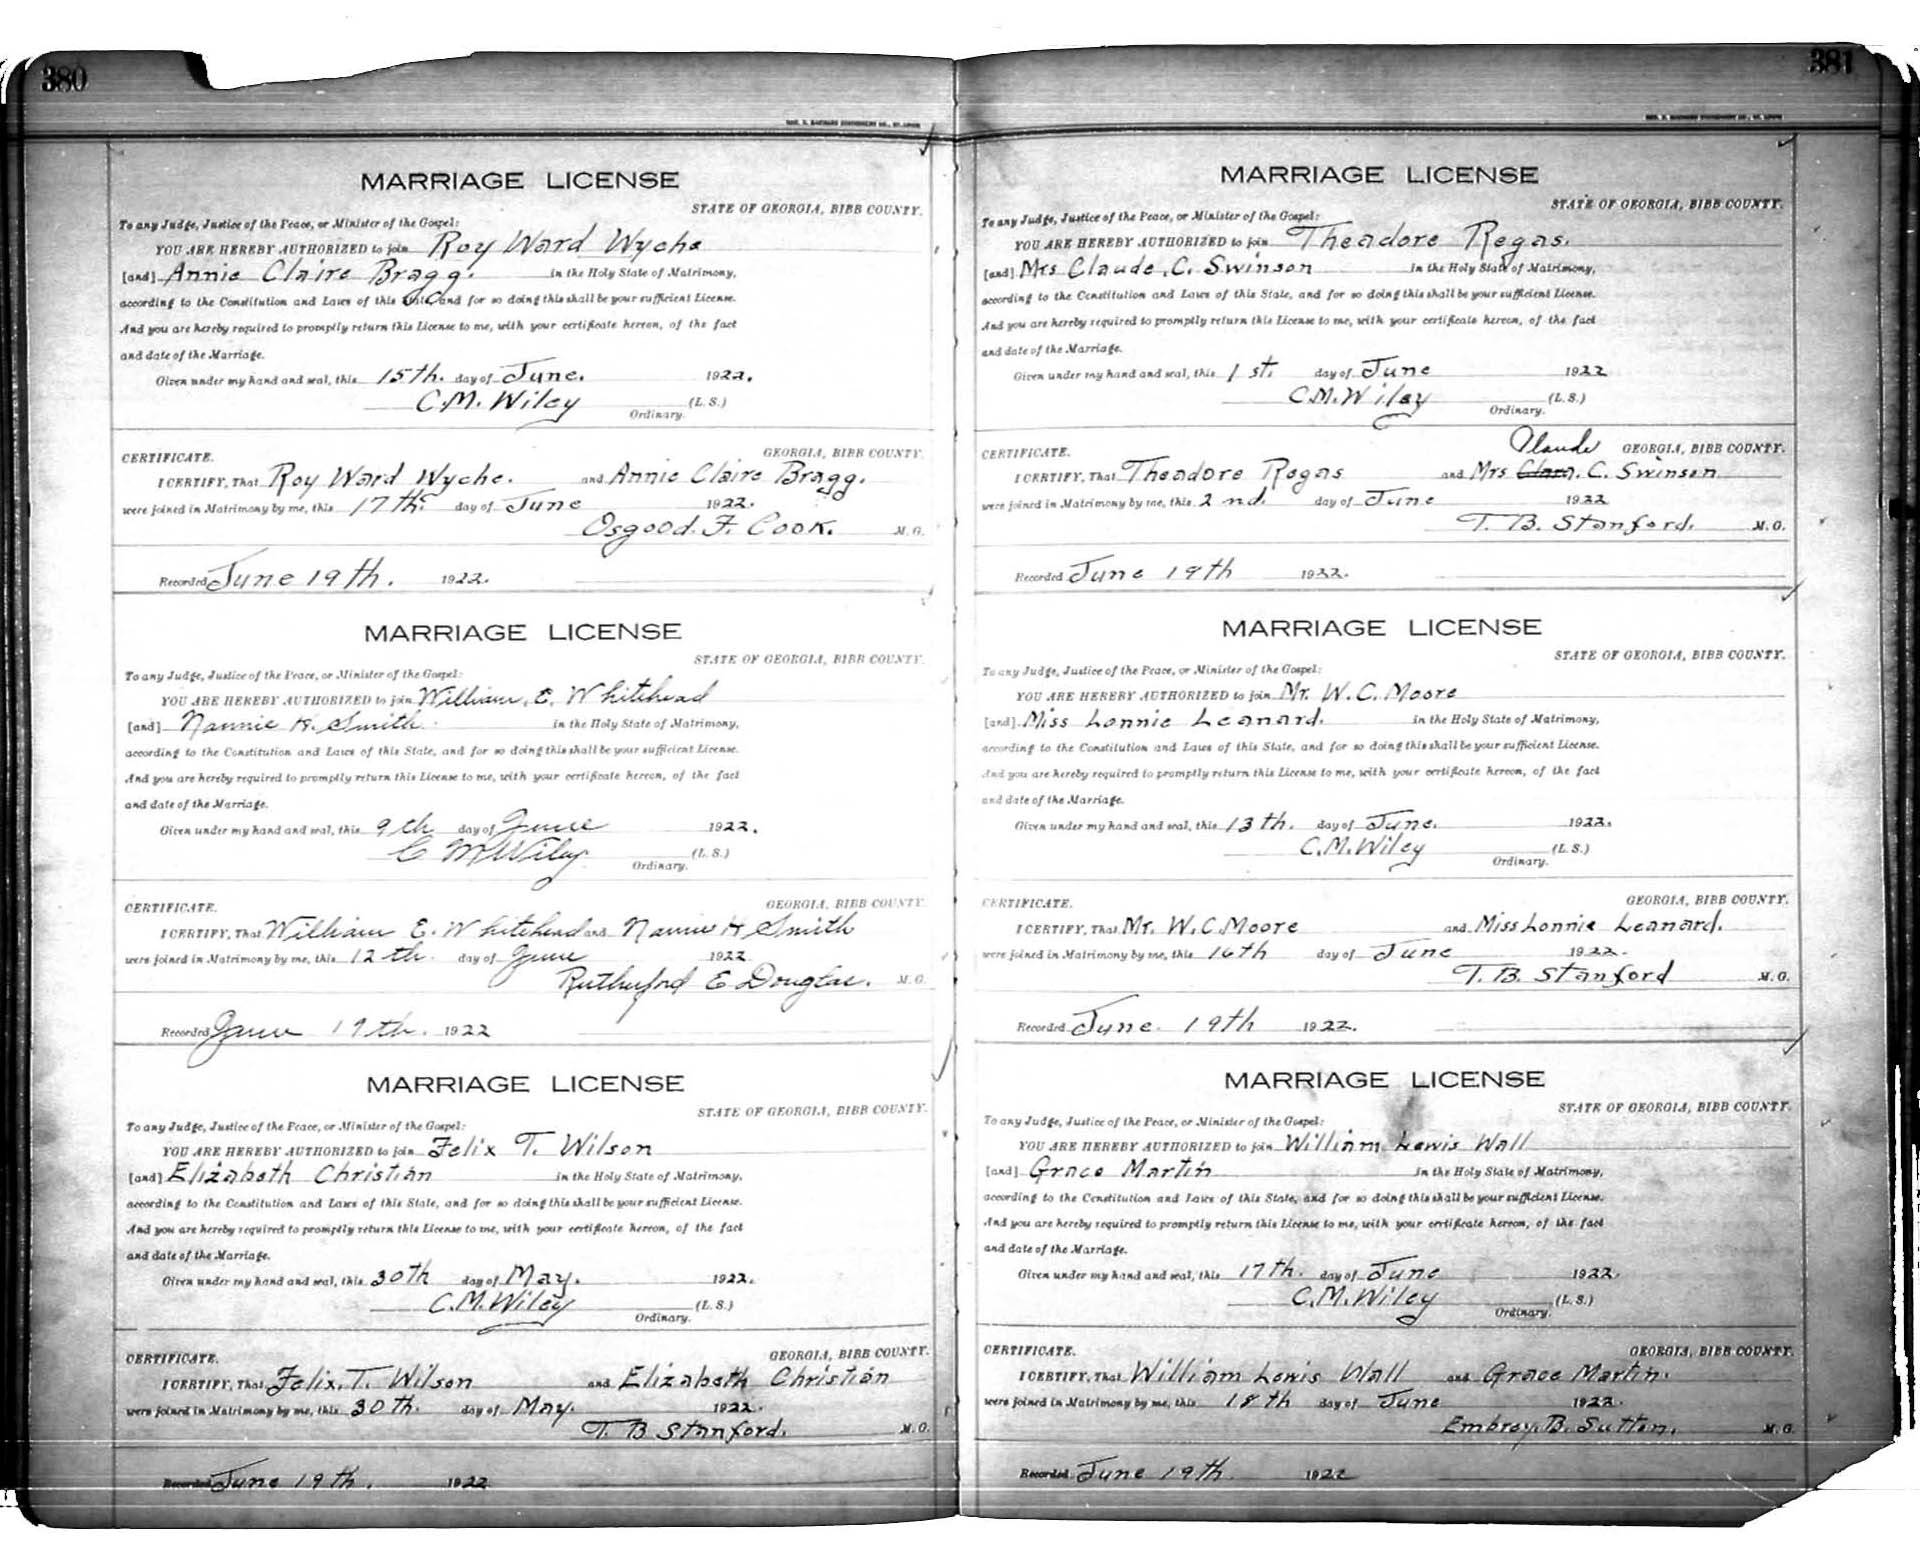 380
MARRIAGE LICENSE
STATE OF GEORGIA, BIBB COUNTY.
To any Judge, Justice of the Peace, or Minister of the Gospel:
YOU ARE HEREBY AUTHORIZED to join Roy Ward Wyche
[and] Annie Claire Bragg. in the Holy State of Matrimony,
according to the Constitution and Laws of this State, and for so doing this shall be your sufficient License.
And you are hereby required to promptly return this License to me, with your certificate hereon, of the fact
and date of the Marriage.
Given under my hand and seal, this 15th. day of June. 1922.
C.M. Wiley (L. S.)
Ordinary.
CERTIFICATE. GEORGIA, BIBB COUNTY.
I CERTIFY, That Roy Ward Wyche. and Annie Claire Bragg.
were joined in Matrimony by me, this 17th. day of June 1922.
Osgood. F. Cook. M. G.
Recorded June 19th. 1922.
MARRIAGE LICENSE
STATE OF GEORGIA, BIBB COUNTY.
To any Judge, Justice of the Peace, or Minister of the Gospel:
YOU ARE HEREBY AUTHORIZED to join William. E. Whitehead
[and] Nannie H. Smith. in the Holy State of Matrimony,
according to the Constitution and Laws of this State, and for so doing this shall be your sufficient License.
And you are hereby required to promptly return this License to me, with your certificate hereon, of the fact
and date of the Marriage.
Given under my hand and seal, this 9th day of June 1922.
C M Wiley (L. S.)
Ordinary.
CERTIFICATE. GEORGIA, BIBB COUNTY.
I CERTIFY, That William E. Whitehead and Nannie H Smith
were joined in Matrimony by me, this 12th. day of June 1922
Rutherford E Douglas. M. G.
Recorded June 19th. 1922
MARRIAGE LICENSE
STATE OF GEORGIA, BIBB COUNTY.
To any Judge, Justice of the Peace, or Minister of the Gospel:
YOU ARE HEREBY AUTHORIZED to join Felix T. Wilson
[and] Elizabeth Christian in the Holy State of Matrimony,
according to the Constitution and Laws of this State, and for so doing this shall be your sufficient License.
And you are hereby required to promptly return this License to me, with your certificate hereon, of the fact
and date of the Marriage.
Given under my hand and seal, this 30th day of May. 1922.
C.M. Wiley (L. S.)
Ordinary.
CERTIFICATE. GEORGIA, BIBB COUNTY.
I CERTIFY, That Felix. T. Wilson and Elizabeth Christian
were joined in Matrimony by me, this 30th. day of May. 1922.
T. B Stanford. M. G.
Recorded June 19th. 1922
381
MARRIAGE LICENSE
STATE OF GEORGIA, BIBB COUNTY.
To any Judge, Justice of the Peace, or Minister of the Gospel:
YOU ARE HEREBY AUTHORIZED to join Theadore Regas.
[and] Mrs Claude. C. Swinson in the Holy State of Matrimony,
according to the Constitution and Laws of this State, and for so doing this shall be your sufficient License.
And you are hereby required to promptly return this License to me, with your certificate hereon, of the fact
and date of the Marriage.
Given under my hand and seal, this 1st. day of June 1922
C.M. Wiley (L. S.)
Ordinary.
Claude
CERTIFICATE. GEORGIA, BIBB COUNTY.
I CERTIFY, That Theadore Regas and Mrs Clara. C. Swinson
were joined in Matrimony by me, this 2nd. day of June 1922
T. B. Stanford. M. G.
Recorded June 19th 1922.
MARRIAGE LICENSE
STATE OF GEORGIA, BIBB COUNTY.
To any Judge, Justice of the Peace, or Minister of the Gospel:
YOU ARE HEREBY AUTHORIZED to join Mr. W. C. Moore
[and] Miss Lonnie Leanard. in the Holy State of Matrimony,
according to the Constitution and Laws of this State, and for so doing this shall be your sufficient License.
And you are hereby required to promptly return this License to me, with your certificate hereon, of the fact
and date of the Marriage.
Given under my hand and seal, this 13th. day of June. 1922.
C.M. Wiley (L. S.)
Ordinary.
CERTIFICATE. GEORGIA, BIBB COUNTY.
I CERTIFY, That Mr. W. C. Moore and Miss Lonnie Leanard.
were joined in Matrimony by me, this 16th day of June 1922.
T. B. Stanford M. G.
Recorded June. 19th 1922.
MARRIAGE LICENSE
STATE OF GEORGIA, BIBB COUNTY.
To any Judge, Justice of the Peace, or Minister of the Gospel:
YOU ARE HEREBY AUTHORIZED to join William Lewis Wall
[and] Grace Martin in the Holy State of Matrimony,
according to the Constitution and Laws of this State, and for so doing this shall be your sufficient License.
And you are hereby required to promptly return this License to me, with your certificate hereon, of the fact
and date of the Marriage.
Given under my hand and seal, this 17th. day of June 1922.
C.M. Wiley (L. S.)
Ordinary.
CERTIFICATE. GEORGIA, BIBB COUNTY.
I CERTIFY, That William Lewis Wall and Grace Martin.
were joined in Matrimony by me, this 18th day of June 1922.
Embrey. B. Sutton. M. G.
Recorded June 19th 1922